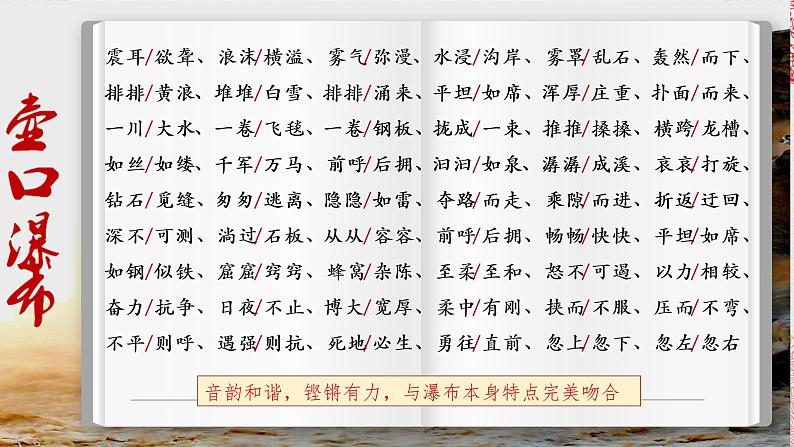 壶口瀑布
震耳/欲聋、浪沫/横溢、雾气/弥漫、水浸/沟岸、雾罩/乱石、轰然/而下、
排排/黄浪、堆堆/白雪、排排/涌来、平坦/如席、浑厚/庄重、扑面/而来、
一川/大水、一卷/飞毯、一卷/钢板、拢成/一束、推推/搡搡、横跨/龙槽、
如丝/如缕、千军/万马、前呼/后拥、汩汩/如泉、潺潺/成溪、哀哀/打旋、
钻石/觅缝、匆匆/逃离、隐隐/如雷、夺路/而走、乘隙/而进、折返/迂回、
深不/可测、淌过/石板、从从/容容、前呼/后拥、畅畅/快快、平坦/如席、
如钢/似铁、窟窟/窍窍、蜂窝/杂陈、至柔/至和、怒不/可遏、以力/相较、
奋力/抗争、日夜/不止、博大/宽厚、柔中/有刚、挟而/不服、压而/不弯、
不平/则呼、遇强/则抗、死地/必生、勇往/直前、忽上/忽下、忽左/忽右
音韵和谐，铿锵有力，与瀑布本身特点完美吻合